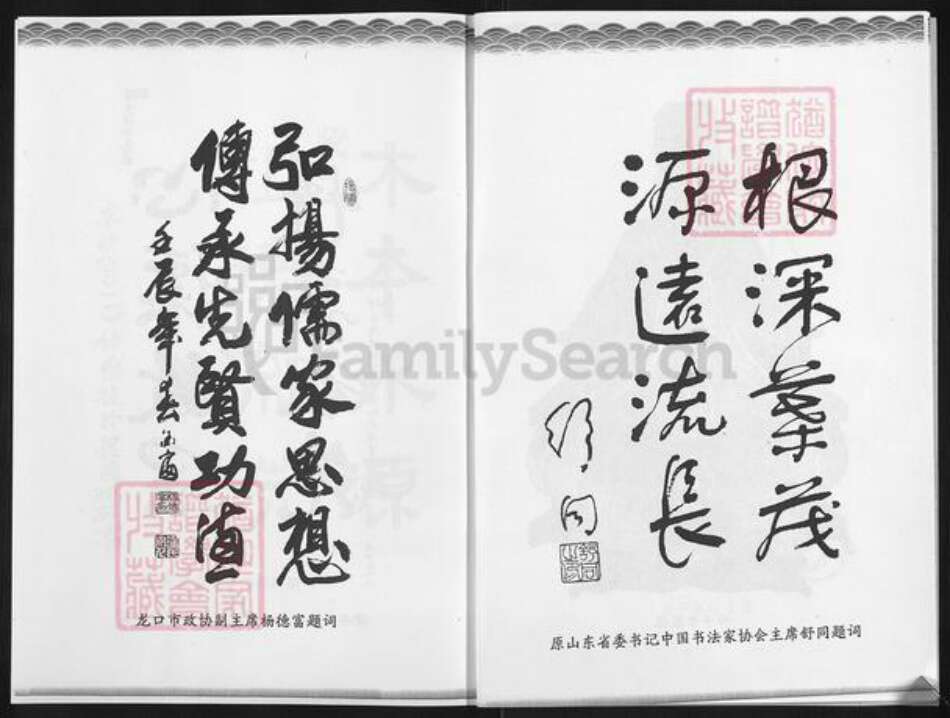 根深葉茂
源遠流長
舒同
原山东省委书记中国书法家协会主席舒同题词
弘揚儒家思想
傳承先賢功德
壬辰年春
龙口市政协副主席杨德富题词
FamilySearch